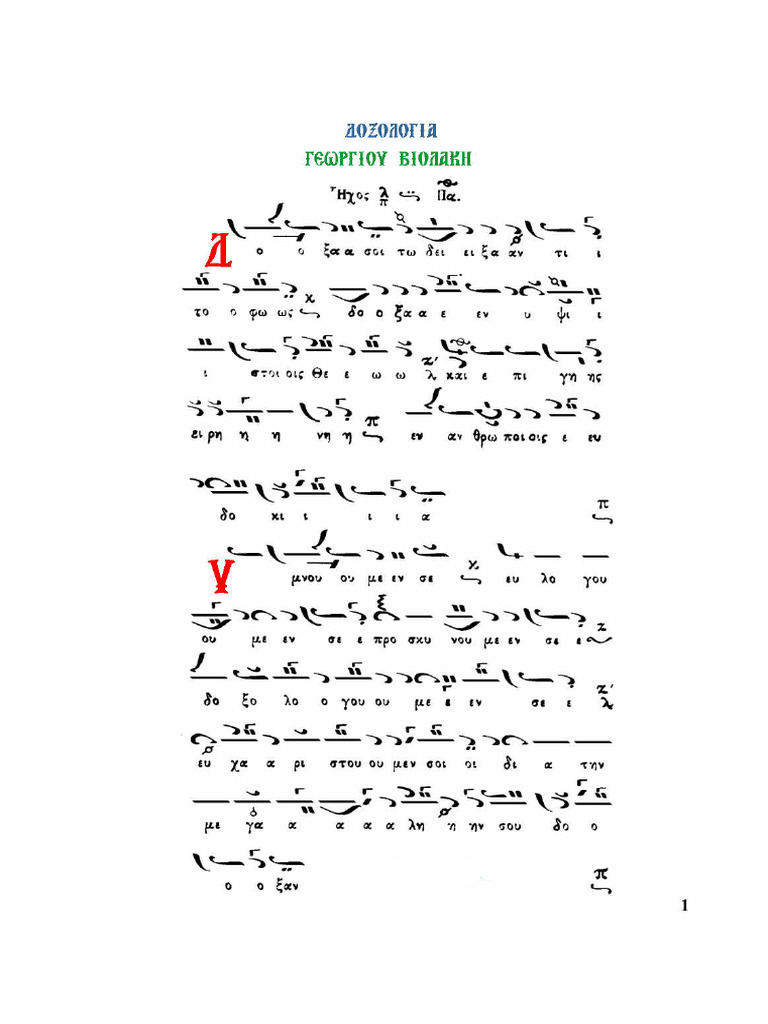 ΔΟΞΟΛΟΓΙΑ
ΓΕΩΡΓΙΟΥ ΒΙΟΛΑΚΗ
Ἦχος λ π Πα.
Δ ο ο ξα α σοι τω δει ει ξα αν τι ι
το ο φω ως κ δο ο ξα α ε εν υ ψι ι
ι στοι οις Θε ε ω ω ζ' λ και ε πι γη ης
ει ρη η η νη η π εν αν θρω ποι οις ε ευ
δο κι ι ι ι α π
Υ μνου ου με εν σε κ ευ λο γου
ου με εν σε ε προ σκυ νου με εν σε ε ζ
δο ξο λο ο γου ου με ε εν σε ε ζ' λ
ευ χα α ρι στου ου μεν σοι οι δι α την
με γα α α α α λη η ην σου δο ο
ο ο ξαν π
1